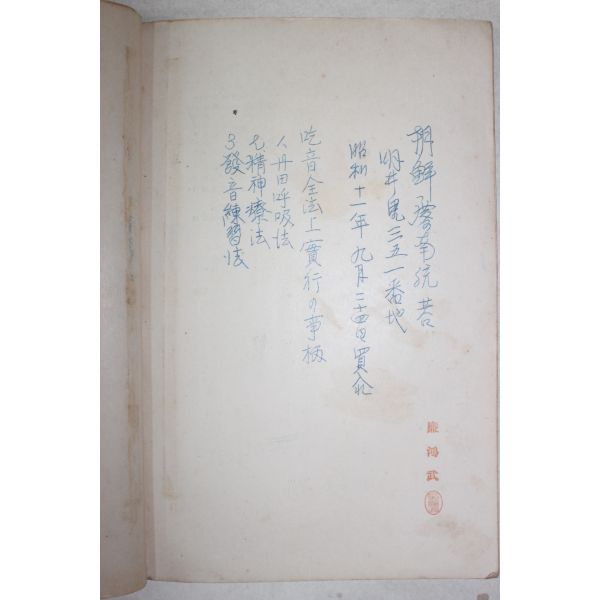 朝鮮慶南統営
明井里三五一番地
昭和十一年九月二十四日買入
吃音全法上實行の事柄
1丹田呼吸法
2精神療法
3發音練習法
嚴鴻武